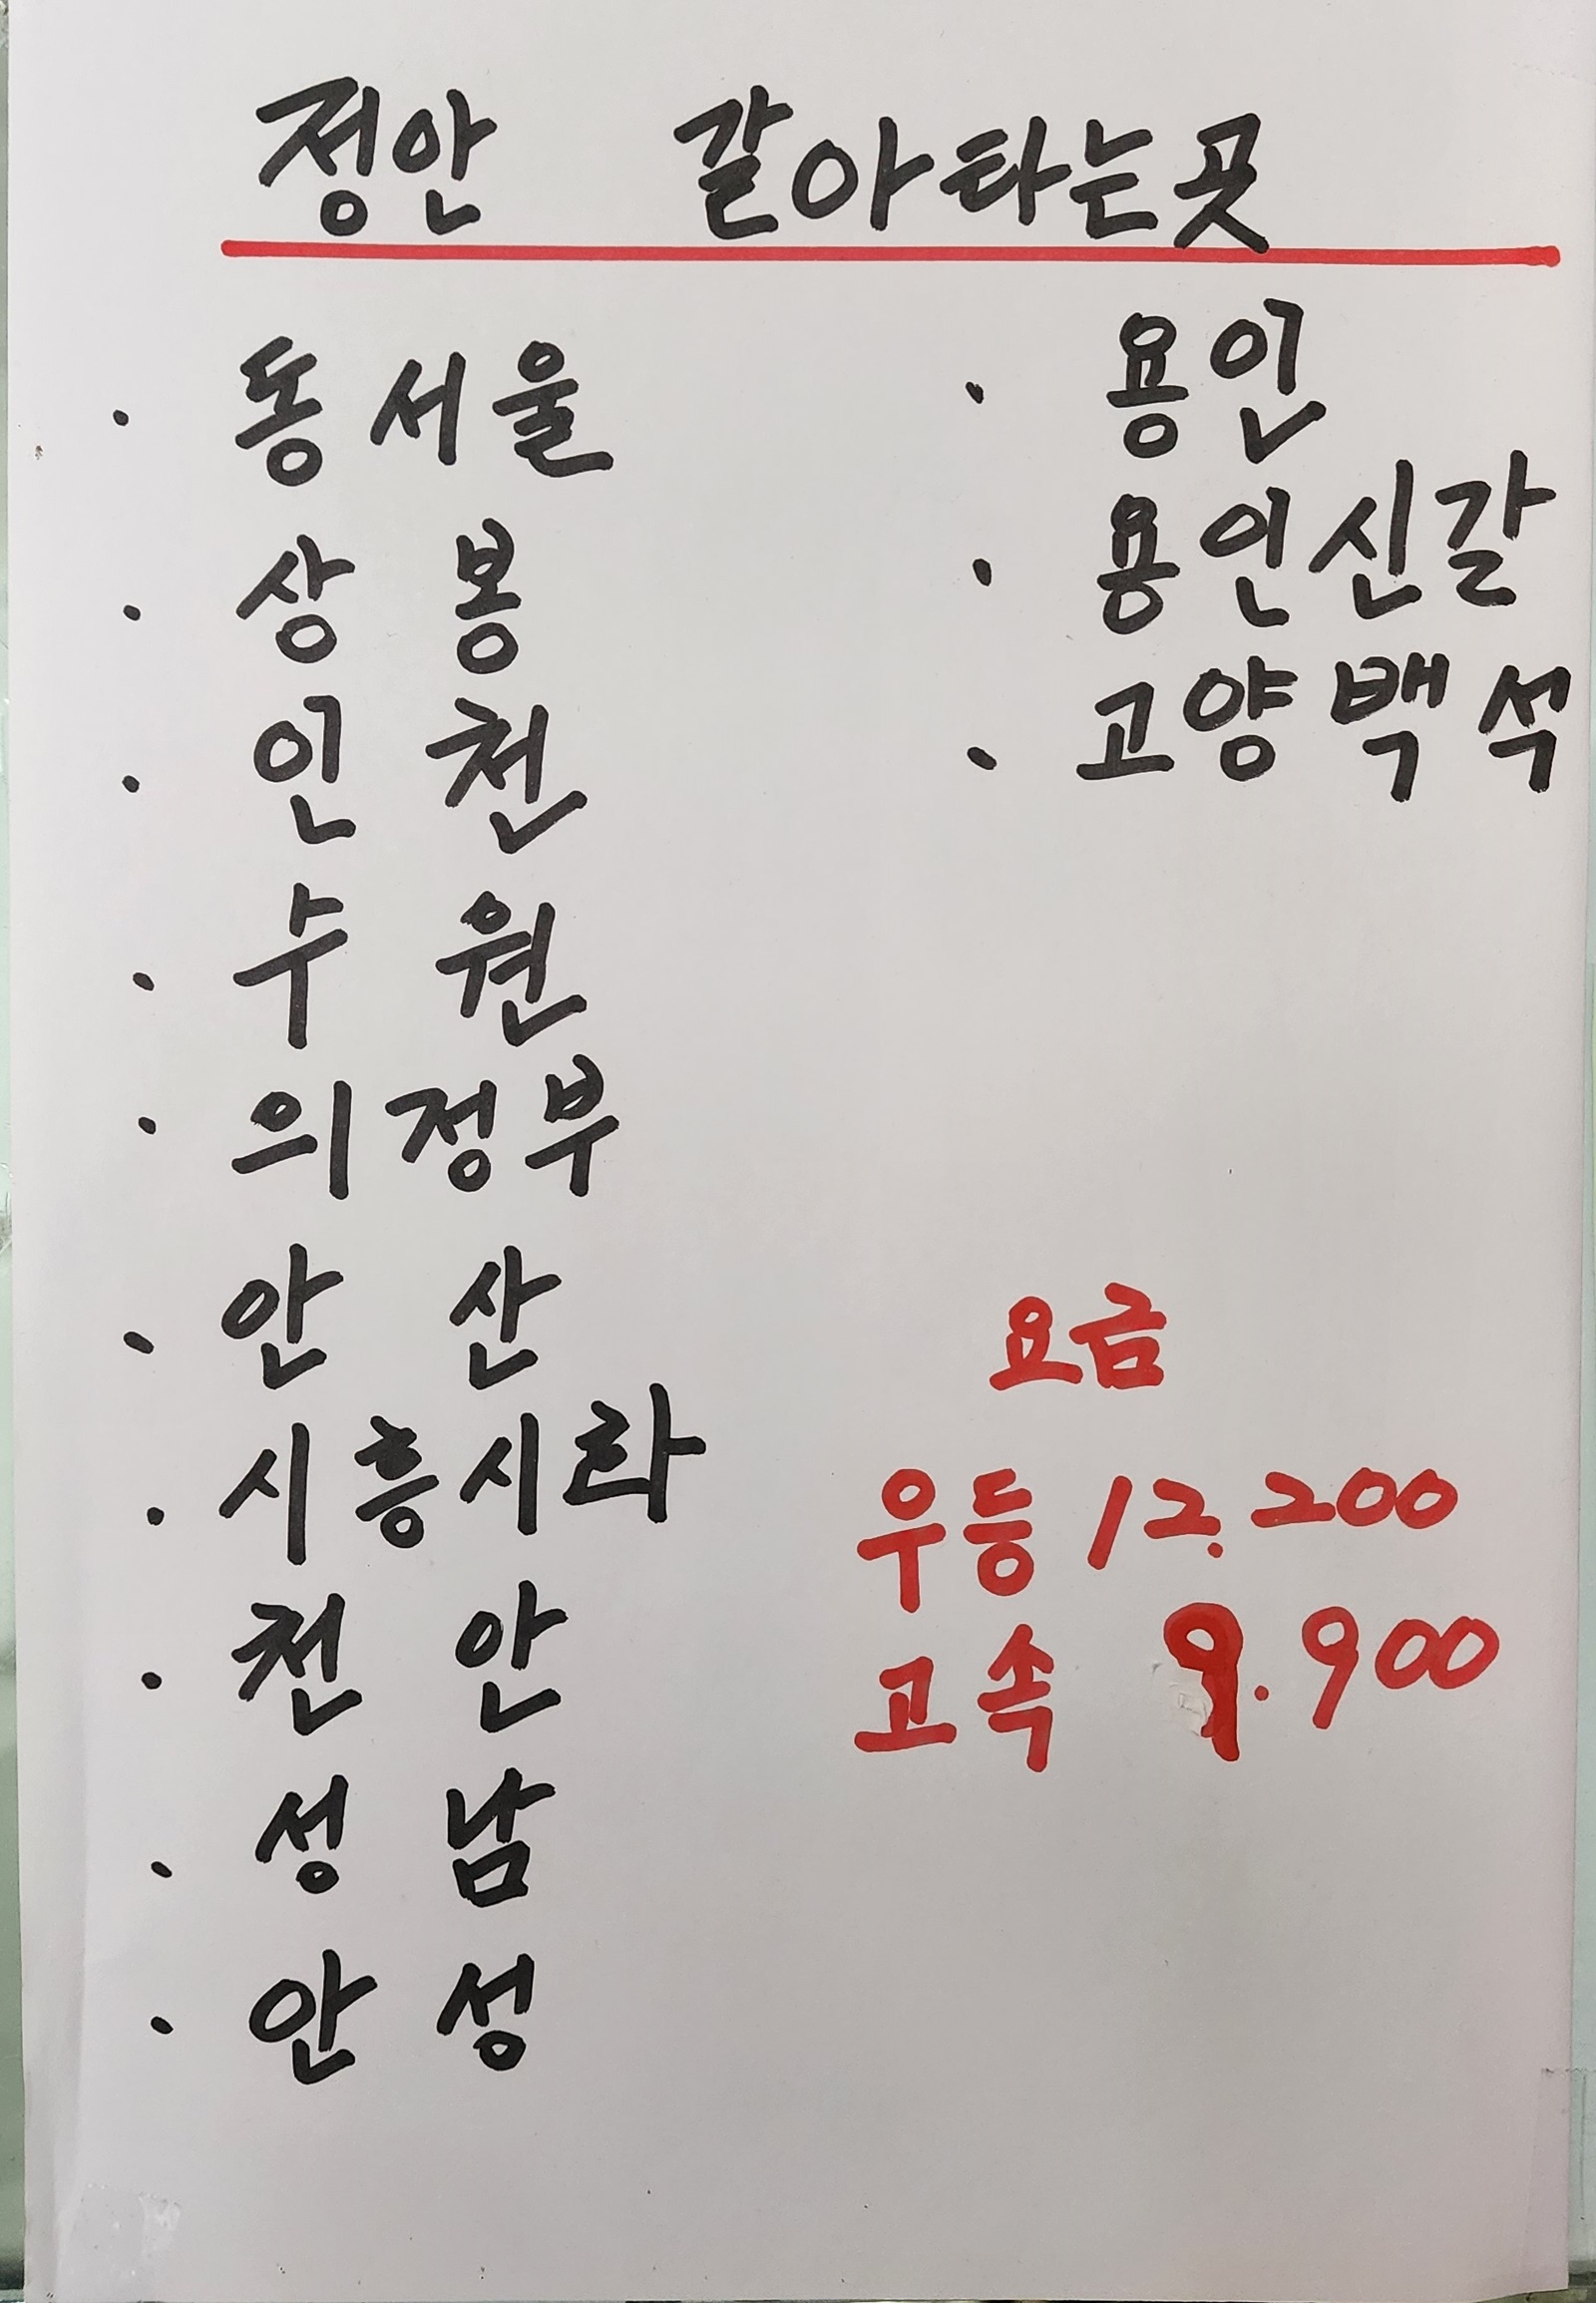 정안 갈아타는곳
· 동서울
· 상봉
· 인천
· 수원
· 의정부
· 안산
· 시흥시화
· 천안
· 성남
· 안성
· 용인
· 용인신갈
· 고양백석
요금
우등 12.200
고속 9.900